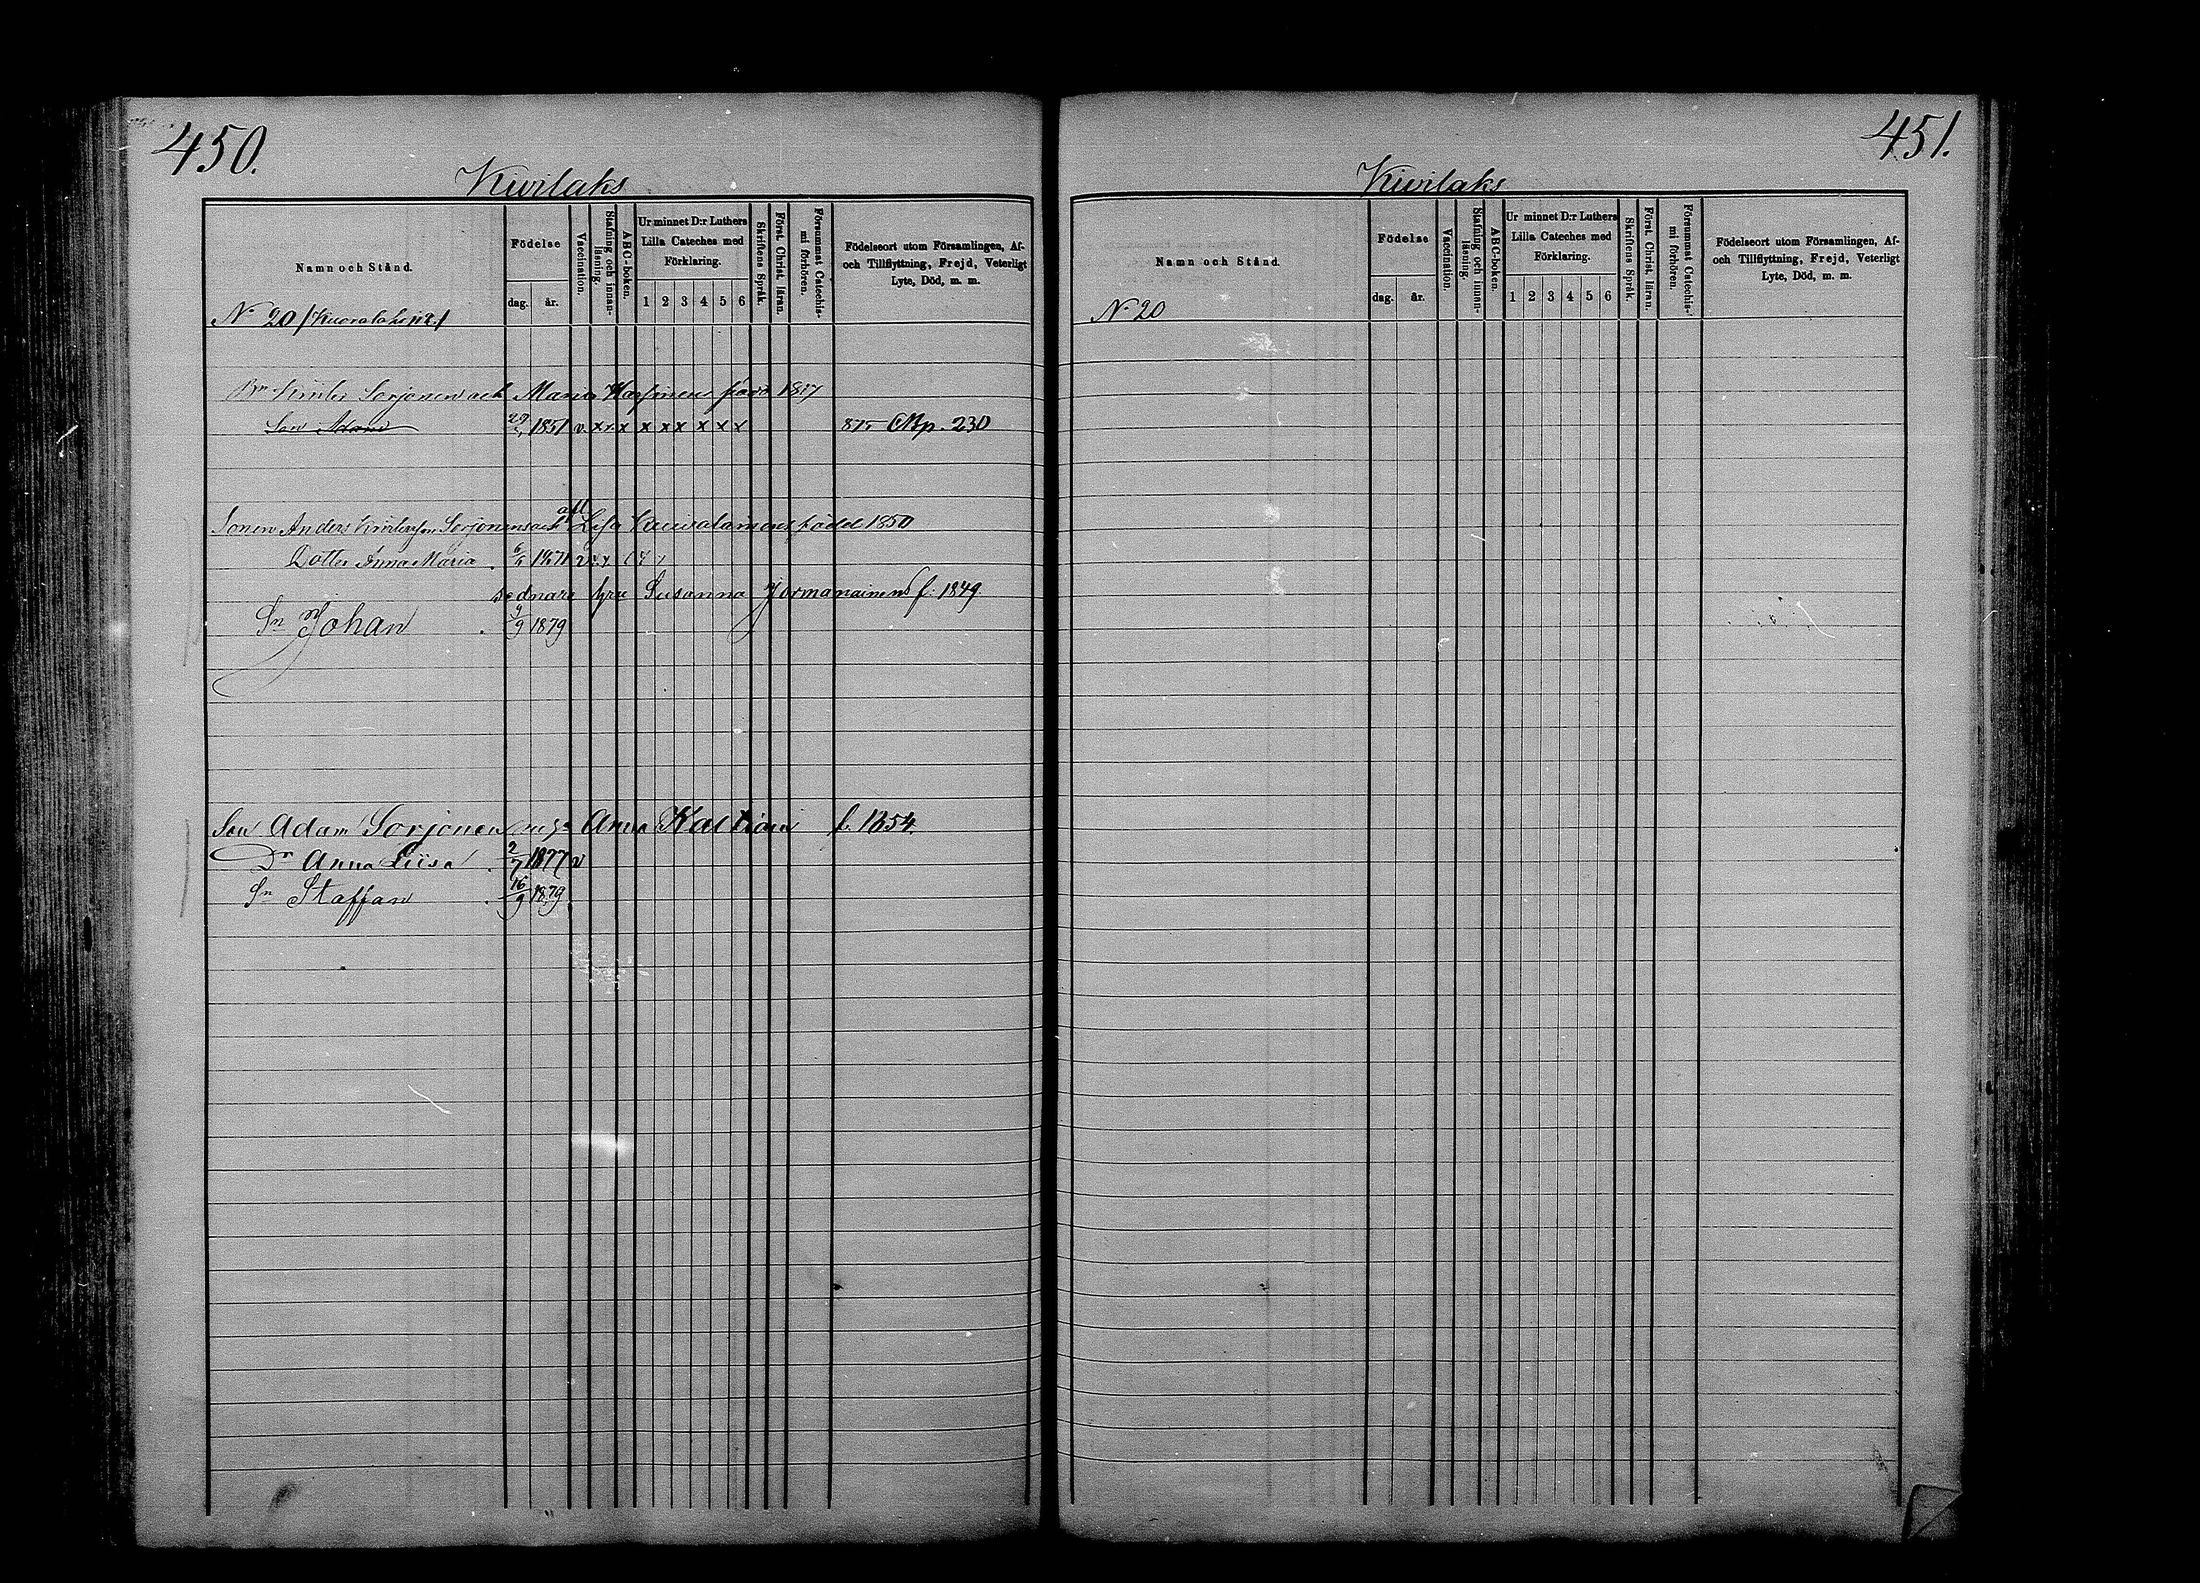 450.
Kivilaks
Namn och Stånd.
Födelse
dag. år.
Vaccination.
Stafning och innanläsning.
ABC-boken.
Ur minnet D:r Luthers Lilla Cateches med Förklaring.
1 2 3 4 5 6
Skriftens Språk.
Först. Christ. läran.
Försummat Catechismi förhören.
Födelseort utom Församlingen, Af- och Tillflyttning, Frejd, Veterligt Lyte, Död, m. m.
N 20
Sorjonen och Maria född 1817
Son Adam 1851 v. x x x x x x x x x 875 Mp. 230
Sonen Anders Sorjonens och Lisa född 1850
Dotter Anna Maria 1871
sednare hru Susanna Jormanainens f: 1849.
Sn Johan 9/9 1879
Son Adam Sorjonen Anna f. 1854.
Dr Anna Liisa 2/7 1877 v
Sn Staffan 16/9 1879
451.
Kivilaks
Namn och Stånd.
Födelse
dag. år.
Vaccination.
Stafning och innanläsning.
ABC-boken.
Ur minnet D:r Luthers Lilla Cateches med Förklaring.
1 2 3 4 5 6
Skriftens Språk.
Först. Christ. läran.
Försummat Catechismi förhören.
Födelseort utom Församlingen, Af- och Tillflyttning, Frejd, Veterligt Lyte, Död, m. m.
N 20